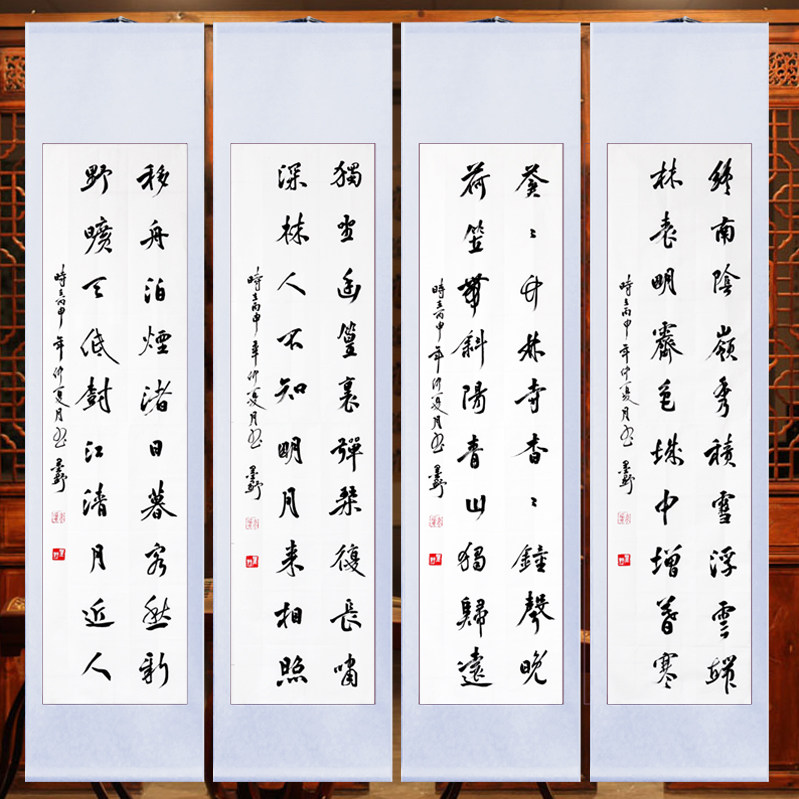 終南陰嶺秀積雪浮雲端
林表明霽色城中增暮寒
時在丙申年仲夏月書
蒼々竹林寺杳々鐘聲晚
荷笠帶斜陽青山獨歸遠
時在丙申年仲夏月書
獨坐幽篁裏彈琴復長嘯
深林人不知明月來相照
時在丙申年仲夏月書
移舟泊煙渚日暮客愁新
野曠天低樹江清月近人
時在丙申年仲夏月書